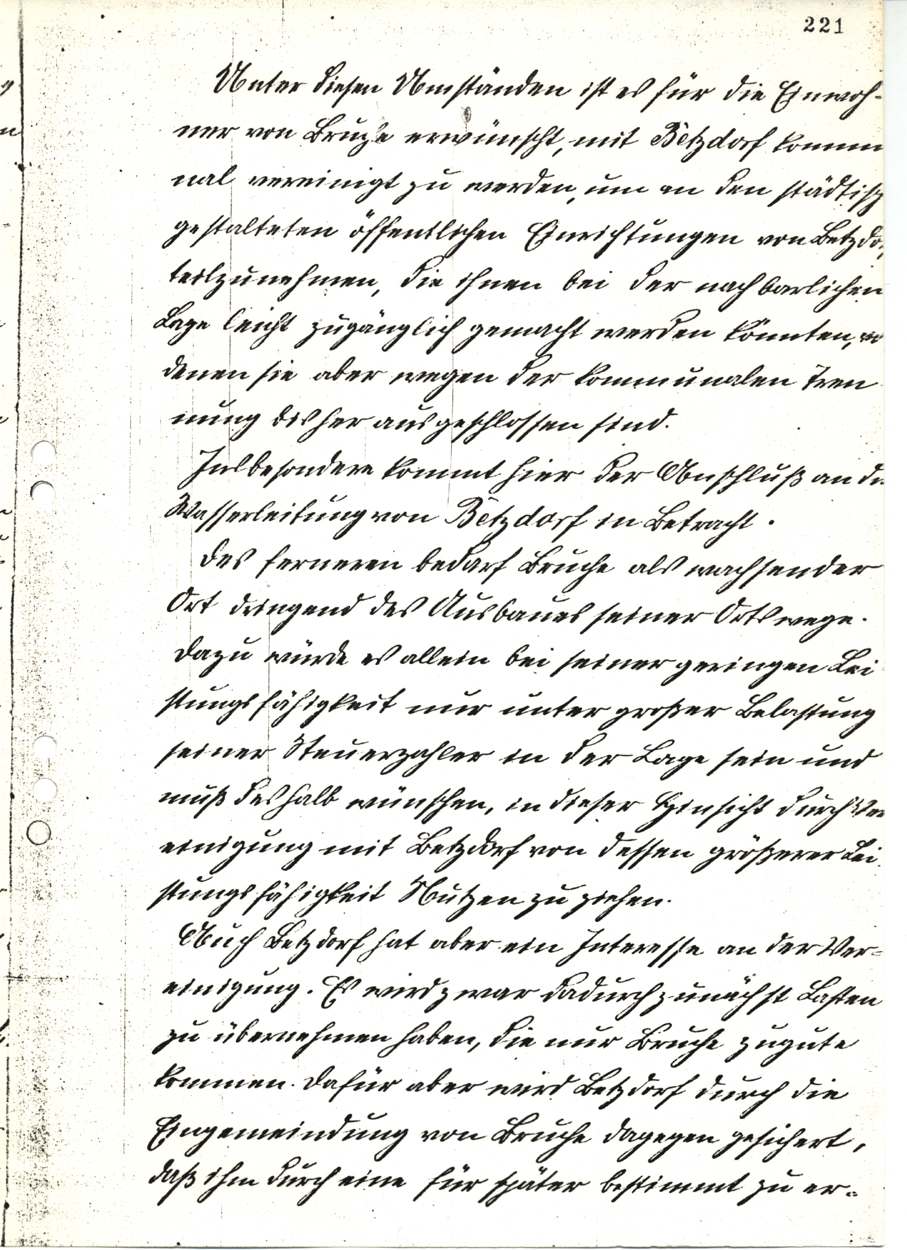 221
Unter diesen Umständen ist es für die Einwoh-
ner von Bruche erwünscht, mit Betzdorf kommu
nal vereinigt zu werden, um an den städtisch
gestalteten öffentlichen Einrichtungen von Betzdo
teilzunehmen, die ihnen bei der nachbarlichen
Lage leicht zugänglich gemacht werden könnten, vo
denen sie aber wegen der kommunalen Tren
nung bisher ausgeschlossen sind.
Insbesondere kommt hier der Anschluß an di
Wasserleitung von Betzdorf in Betracht.
Des ferneren bedarf Bruche als wachsender
Ort dringend des Ausbaues seiner Ortswege.
Dazu würde es allein bei seiner geringen Lei
stungsfähigkeit nur unter großer Belastung
seiner Steuerzahler in der Lage sein und
muß deshalb wünschen, in dieser Hinsicht durch Ver
einigung mit Betzdorf von dessen größerer Lei
stungsfähigkeit Nutzen zu ziehen.
Auch Betzdorf hat aber ein Interesse an der Ver-
einigung. Es wird zwar dadurch zunächst Lasten
zu übernehmen haben, die nur Bruche zugute
kommen. Dafür aber wird Betzdorf durch die
Eingemeindung von Bruche dagegen gesichert,
daß ihm durch eine für später bestimmt zu er-